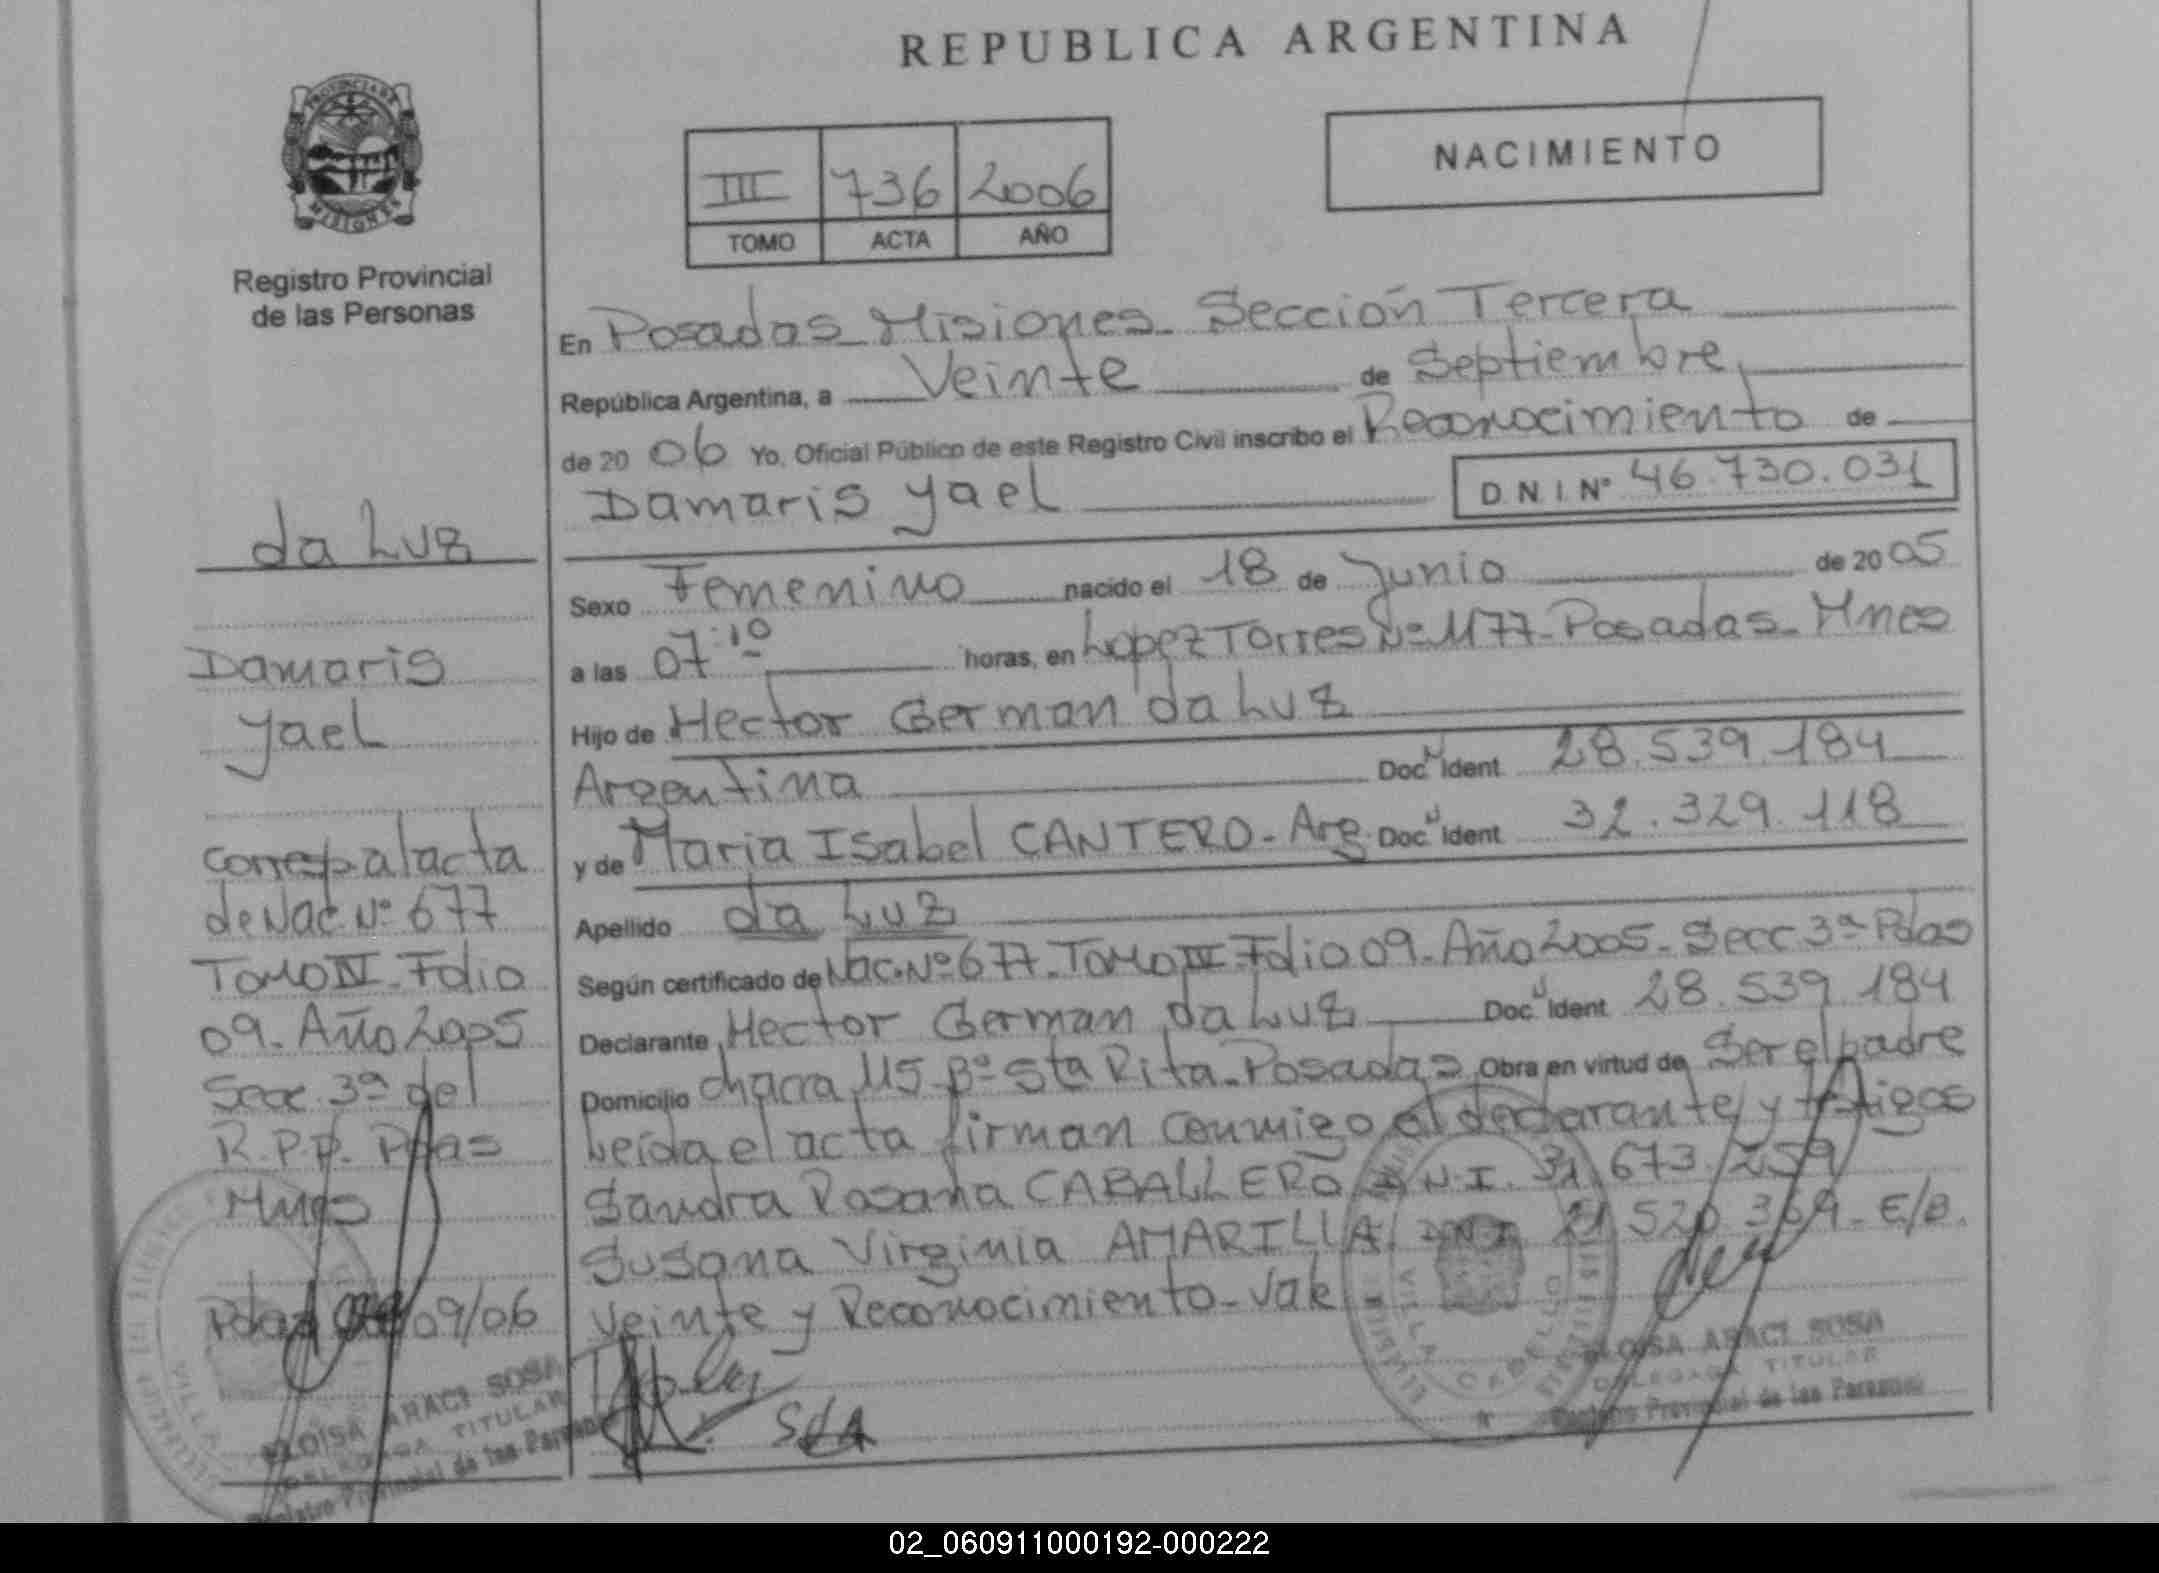 REPUBLICA ARGENTINA
PROVINCIA DE
MISIONES
Registro Provincial
de las Personas
III 736 2006
TOMO ACTA AÑO
NACIMIENTO
En Posadas Misiones Sección Tercera
República Argentina, a Veinte de Septiembre
de 20 06 Yo, Oficial Público de este Registro Civil inscribo el Reconocimiento de
Damaris Yael D.N.I.Nº 46.730.031
Sexo Femenino nacido el 18 de Junio de 20 05
a las 07:10 horas, en Lopez Torres Nº 1177 - Posadas - Mnes
Hijo de Hector German da Luz
Argentina Doc. Ident 28.539.184
y de Maria Isabel CANTERO - Arg. Doc. Ident 32.329.118
Apellido da Luz
Según certificado de Nac. Nº 677 - Tomo IV - Folio 09 - Año 2005 - Secc 3ª Pdas
Declarante Hector German da Luz Doc. Ident 28.539.184
Domicilio chacra 115 Bº Sta Rita - Posadas Obra en virtud de Ser el padre
Leída el acta firman conmigo el declarante y testigos
Sandra Rosana CABALLERO D.N.I. 31.673.259
Susana Virginia AMARILLA D.N.I. 21.520.369 - E/B.
Veinte y Reconocimiento - Vale
ELOISA ARACI SOSA
DELEGADA TITULAR
Registro Provincial de las Personas
da Luz
Damaris
Yael
corresp al acta
de Nac. Nº 677
Tomo IV - Folio
09 - Año 2005
Secc. 3ª del
R.P.P. Pdas
Mnes
Pdas /09/06
ELOISA ARACI SOSA
DELEGADA TITULAR
Registro Provincial de las Personas
VILLA CABELLO
VILLA
02_060911000192-000222